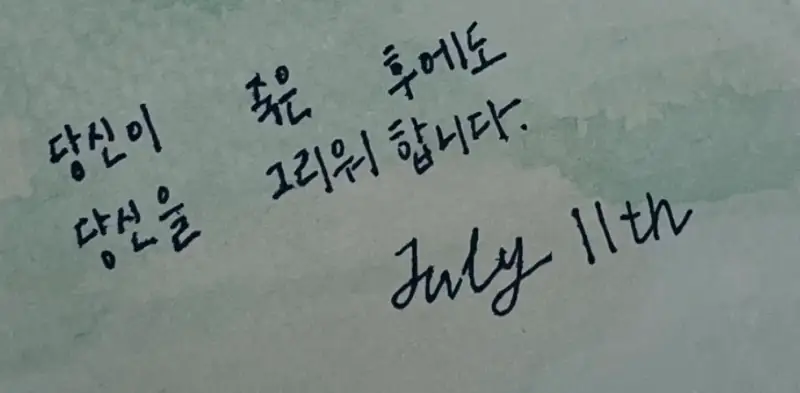 당신이 죽은 후에도
당신을 그리워 합니다.
July 11th